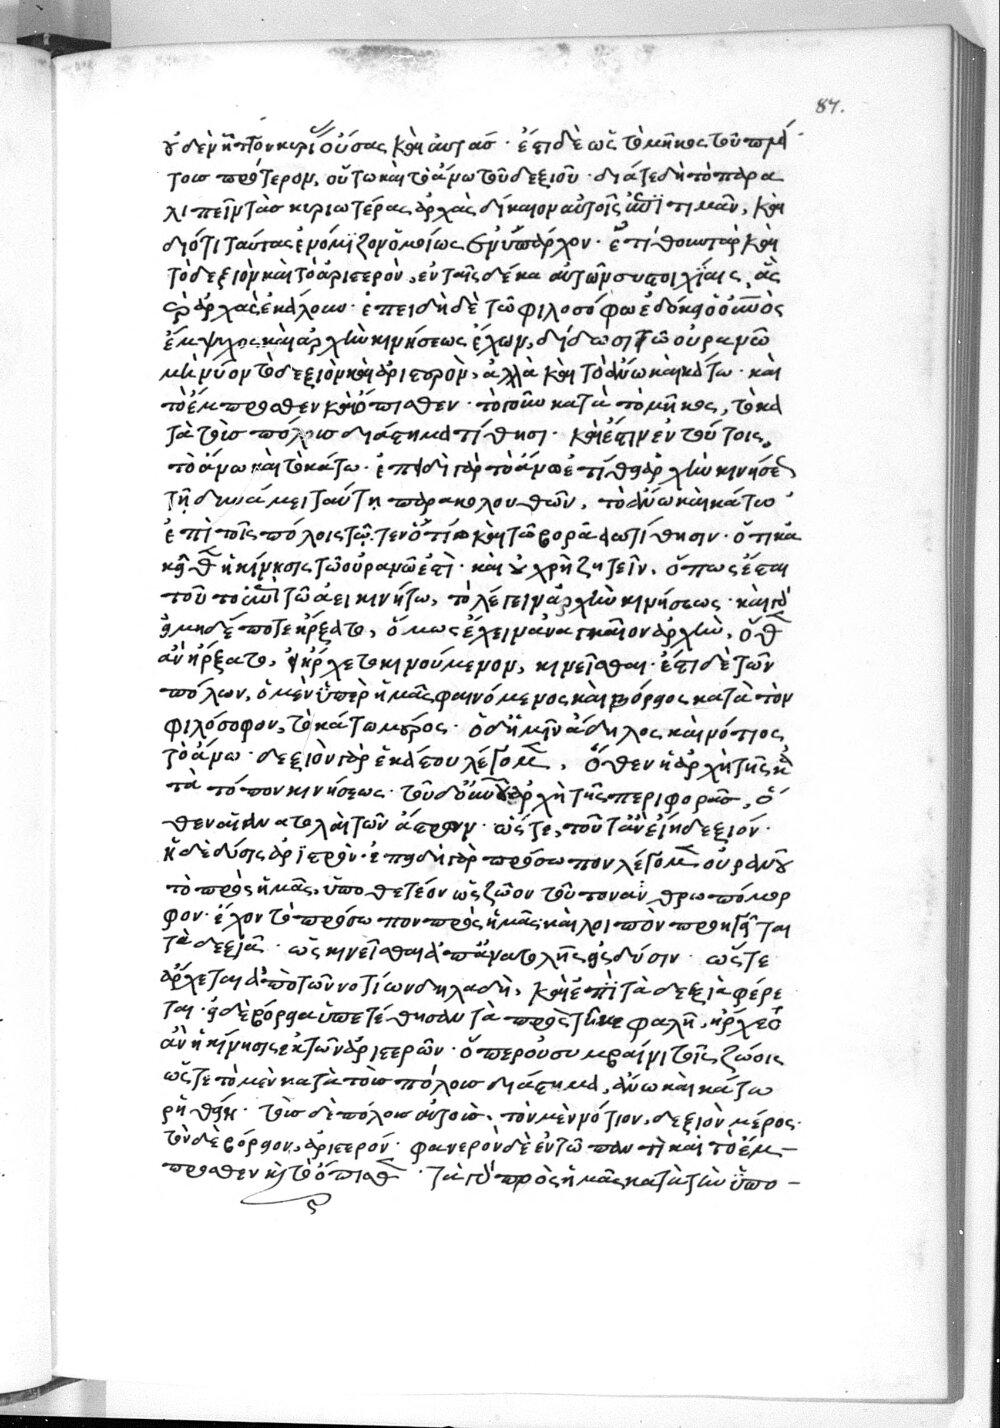 87.
οὐδὲν ἧττον κυρίους οὔσας καὶ αὐτάς · ἔστι δὲ ὡς τὸ μῆκος τοῦ πλά
τους πρότερον, οὕτω καὶ τὸ ἄνω τοῦ δεξιοῦ · διὰ γε δὴ τὸ παρα
λιπεῖν τὰς κυριωτέρας ἀρχὰς δίκαιον αὐτοῖς ἐπιτιμᾶν, καὶ
διότι ταύτας ἐνόμιζον ὁμοίως ἐν ὑπάρχειν · ἐτίθουν γὰρ καὶ
τὸ δεξιὸν καὶ τὸ ἀριστερὸν, ἐν ταῖς δέκα αὐτῶν συστοιχίαις, ἃς
καὶ ἀρχὰς ἐκάλουν · ἐπειδὴ δὲ τῷ φιλοσόφῳ ἐδόκει ὁ οὐρανὸς
ἔμψυχος καὶ ἀρχὴν κινήσεως ἔχων, δίδωσι τῷ οὐρανῷ
μὴ μόνον τὸ δεξιὸν καὶ ἀριστερὸν, ἀλλὰ καὶ τὸ ἄνω καὶ κάτω · καὶ
τὸ ἔμπροσθεν καὶ ὄπισθεν · τὸ γοῦν κατὰ τὸ μῆκος, τὸ κα
τὰ τοὺς πόλους διάστημα τίθησι · καὶ ἔστιν ἐν τούτοις,
τὸ ἄνω καὶ τὸ κάτω · ἐπειδὴ γὰρ τὸ ἄνω ἐτίθει ἀρχὴν κινήσεως
τῇ δυνάμει ταύτῃ παρακολουθῶν, τὸ ἄνω καὶ κάτω
ἐπὶ τοῖς πόλοις τῷ τε νοτίῳ καὶ τῷ βορείῳ τίθησιν ·
ἡ κίνησις τῷ οὐρανῷ ἐστί · καὶ οὐ χρὴ ζητεῖν, ὅπως ἔσται
τοῦτο ἐπὶ τῷ ἀεικινήτῳ, τὸ λέγειν ἀρχὴν κινήσεως · καὶ γὰρ
εἰ μηδέποτε ἤρξατο, ὅμως ἔχειν ἀναγκαῖον ἀρχὴν, ὅθεν
ἂν ἤρξατο, εἰ ἤρχετο κινούμενον, κινεῖσθαι · ἔστι δὲ τῶν
πόλων, ὁ μὲν ὑπὲρ ἡμᾶς φαινόμενος καὶ βόρειος κατὰ τὸν
φιλόσοφον, τὸ κάτω μέρος · ὁ δ' ἡμῖν ἄδηλος καὶ νότιος
τὸ ἄνω · δεξιὸν γὰρ ἑκάστου λέγομεν, ὅθεν ἡ ἀρχὴ τῆς κα
τὰ τόπον κινήσεως · τοῦ δ' οὐρανοῦ ἀρχὴ τῆς περιφορᾶς, ὅ
θεν αἱ ἀνατολαὶ τῶν ἄστρων · ὥστε, τοῦτ' ἂν εἴη δεξιόν ·
ἡ δὲ δύσις ἀριστερόν · ἐπειδὴ γὰρ πρόσωπον λέγομεν οὐρανοῦ
τὸ πρὸς ἡμᾶς, ὑποθετέον ὡς ζῷον τοῦτον ἀνθρωπόμορ
φον · ἔχον τὸ πρόσωπον πρὸς ἡμᾶς· καὶ λοιπὸν
τὰ δεξιὰ · ὡς κινεῖσθαι ἀπ' ἀνατολῆς εἰς δύσιν · ὥστε
ἄρχεται ἀπὸ τῶν νοτίων δηλαδὴ, καὶ ἐπὶ τὰ δεξιὰ φέρε
ται · εἰ δὲ βόρεια ὑπετέθησαν τὰ πρὸς τὴν κεφαλὴν, ἤρχετο
ἂν ἡ κίνησις ἐκ τῶν ἀριστερῶν · ὅπερ οὐ συμβαίνει τοῖς ζῴοις
ὥστε τὸ μὲν κατὰ τοὺς πόλους διάστημα, ἄνω καὶ κάτω
ῥηθήσεται · τοὺς δὲ πόλους αὐτοὺς, τὸν μὲν νότιον, δεξιὸν μέρος ·
τὸν δὲ βόρειον, ἀριστερόν · φανερὸν δὲ ἐν τῷ παντὶ καὶ τὸ ἔμ-
προσθεν καὶ τὸ ὄπισθεν · τὰ γὰρ πρὸς ἡμᾶς κατὰ τὴν ὑπο-